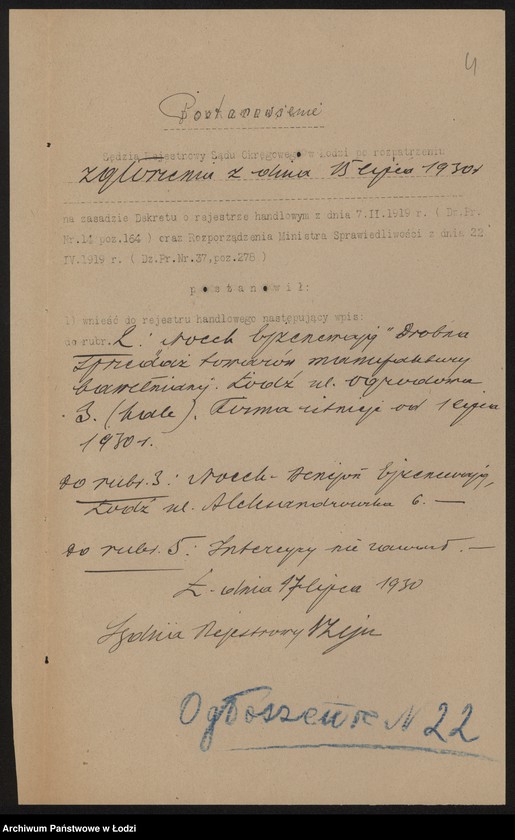 4
Postanowienie
Sędzia Rejestrowy Sądu Okręgowego w Łodzi po rozpatrzeniu
zgłoszenia z dnia 15 lipca 1930 r
na zasadzie Dekretu o rejestrze handlowym z dnia 7.II.1919 r. ( Dz.Pr.
Nr.14 poz.164 ) oraz Rozporządzenia Ministra Sprawiedliwości z dnia 22
IV.1919 r. ( Dz.Pr.Nr.37,poz.276 )
p o s t a n o w i ł:
1) wnieść do rejestru handlowego następujący wpis:
do rubr. 2: "Noech Ejzenewajg" Drobna
sprzedaż towarów manufaktury
bawełnianej. Łódź ul. Ogrodowa
3. (hale). Firma istnieje od 1 lipca
1930 r.
do rubr. 3: Noech Ejzenewajg,
Łódź ul. Aleksandrowska 6. —
do rubr. 5: Intercyzy nie zawarł. —
Ł. dnia 17 lipca 1930
Sędzia Rejestrowy
Ogłoszenie N 22
Archiwum Państwowe w Łodzi